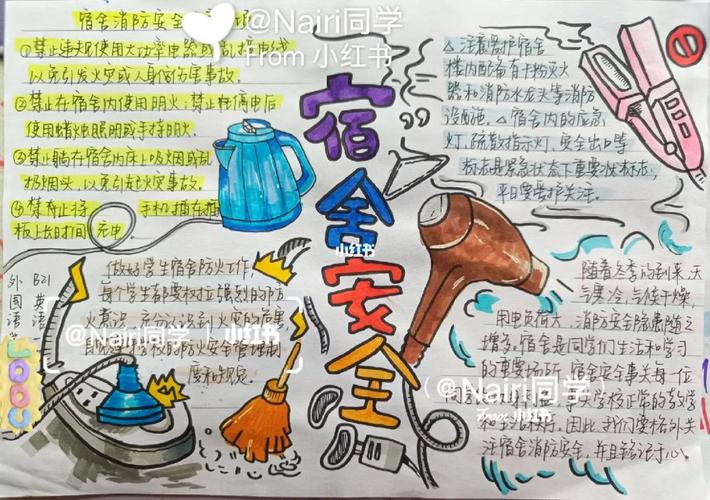 宿舍消防安全
@Nairi同学
From 小红书
①禁止违规使用大功率电器
以免引发火灾或人身伤害事故。
②禁止在宿舍内使用明火,禁止在停电后
使用蜡烛照明或手持明火.
③禁止躺在宿舍内床上吸烟或乱
扔烟头,以免引起火灾事故.
④禁止将 手机插在插
板上长时间充电
宿舍安全
小红书
△注意爱护宿舍
楼内配备有干粉灭火
器和消防水龙头等消防
设施。△宿舍内的应急
灯,疏散指示灯,安全出口等
标志是紧急状态下重要标志,
平日要爱护关注。
外国语
B21英语
LOGO
做好学生宿舍防火工作,
每个学生都要树立强烈的防
火意识,充分认识到火灾的危害
学校的防火安全管理制
度和规定.
@Nairi同学 | 小红书
随着冬季的到来,天
气寒冷,气候干燥,
用电负荷大,消防安全隐患随之
增多.宿舍是同学们生活和学习
的重要场所,宿舍安全事关每一位
同
学校正常的教学
因此,我们要格外关
注宿舍消防安全,并且
@Nairi同学
From 小红书